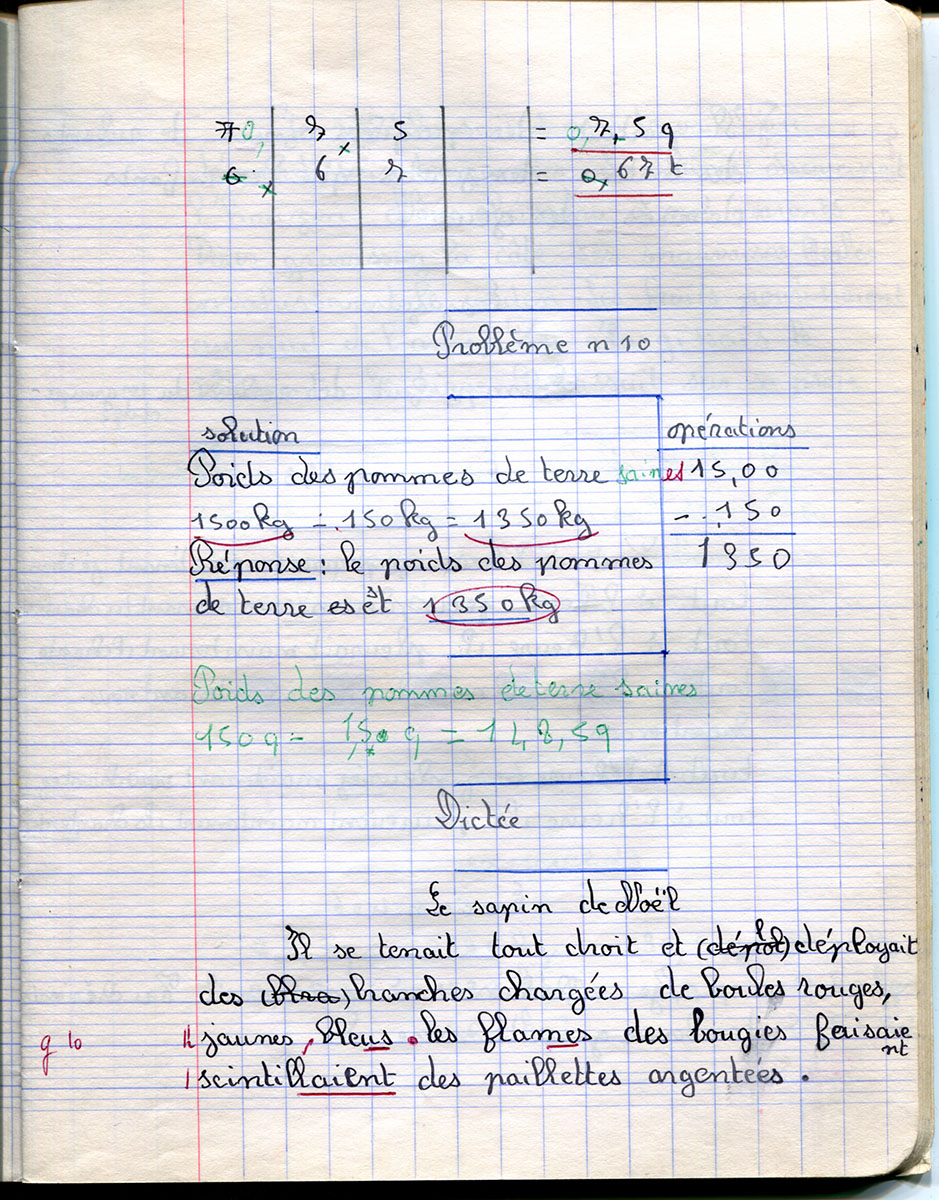 0, 7 5 = 0,7,5 q
6 7 = 0,67 t
Problème n 10
solution
opérations
Poids des pommes de terre saines
15,00
1500 kg - 150 kg = 1350 kg
- 150
Réponse : le poids des pommes
1350
de terre est 1350 kg
Poids des pommes de terre saines
150 q - 150 q = 14,8,5 q
Dictée
Le sapin de Noël
Il se tenait tout droit et (dépol) déployait
des (bra) branches chargées de boules rouges,
jaunes, bleus. les flames des bougies faisaient
scintillaient des paillettes argentées.